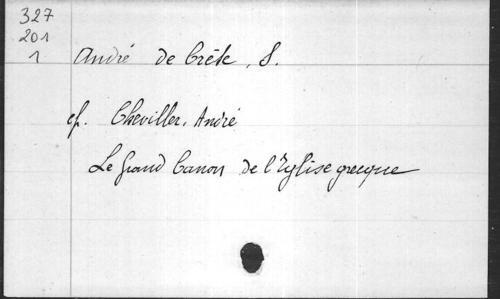 327
201
1
André de Crète, S.
cf. Cheviller, André
Le Grand Canon de l'Eglise grecque